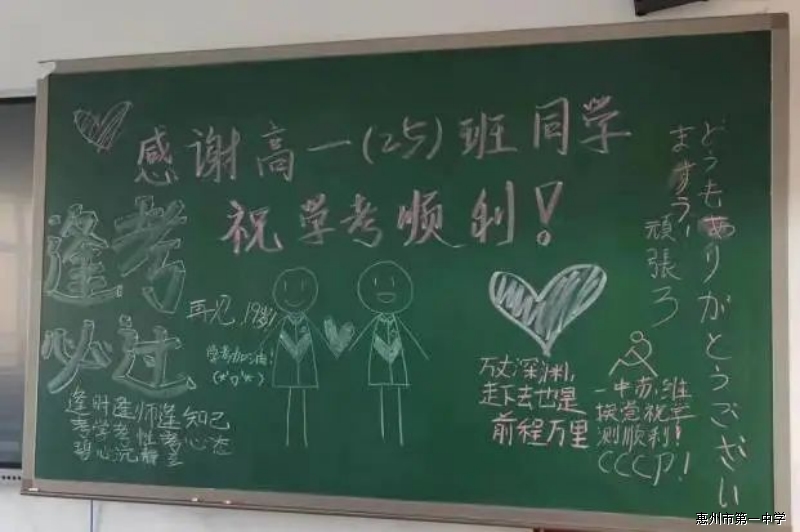 感谢高一(25)班同学
祝学考顺利！
逢考
必过
再见,19岁
学考加油!
逢时逢师逢知己
万丈深渊,
走下去也是
前程万里
一中苏维
埃党祝学
测顺利!
CCCP!
どうもありがとうござい
ますう!
頑張ろ
惠州市第一中学